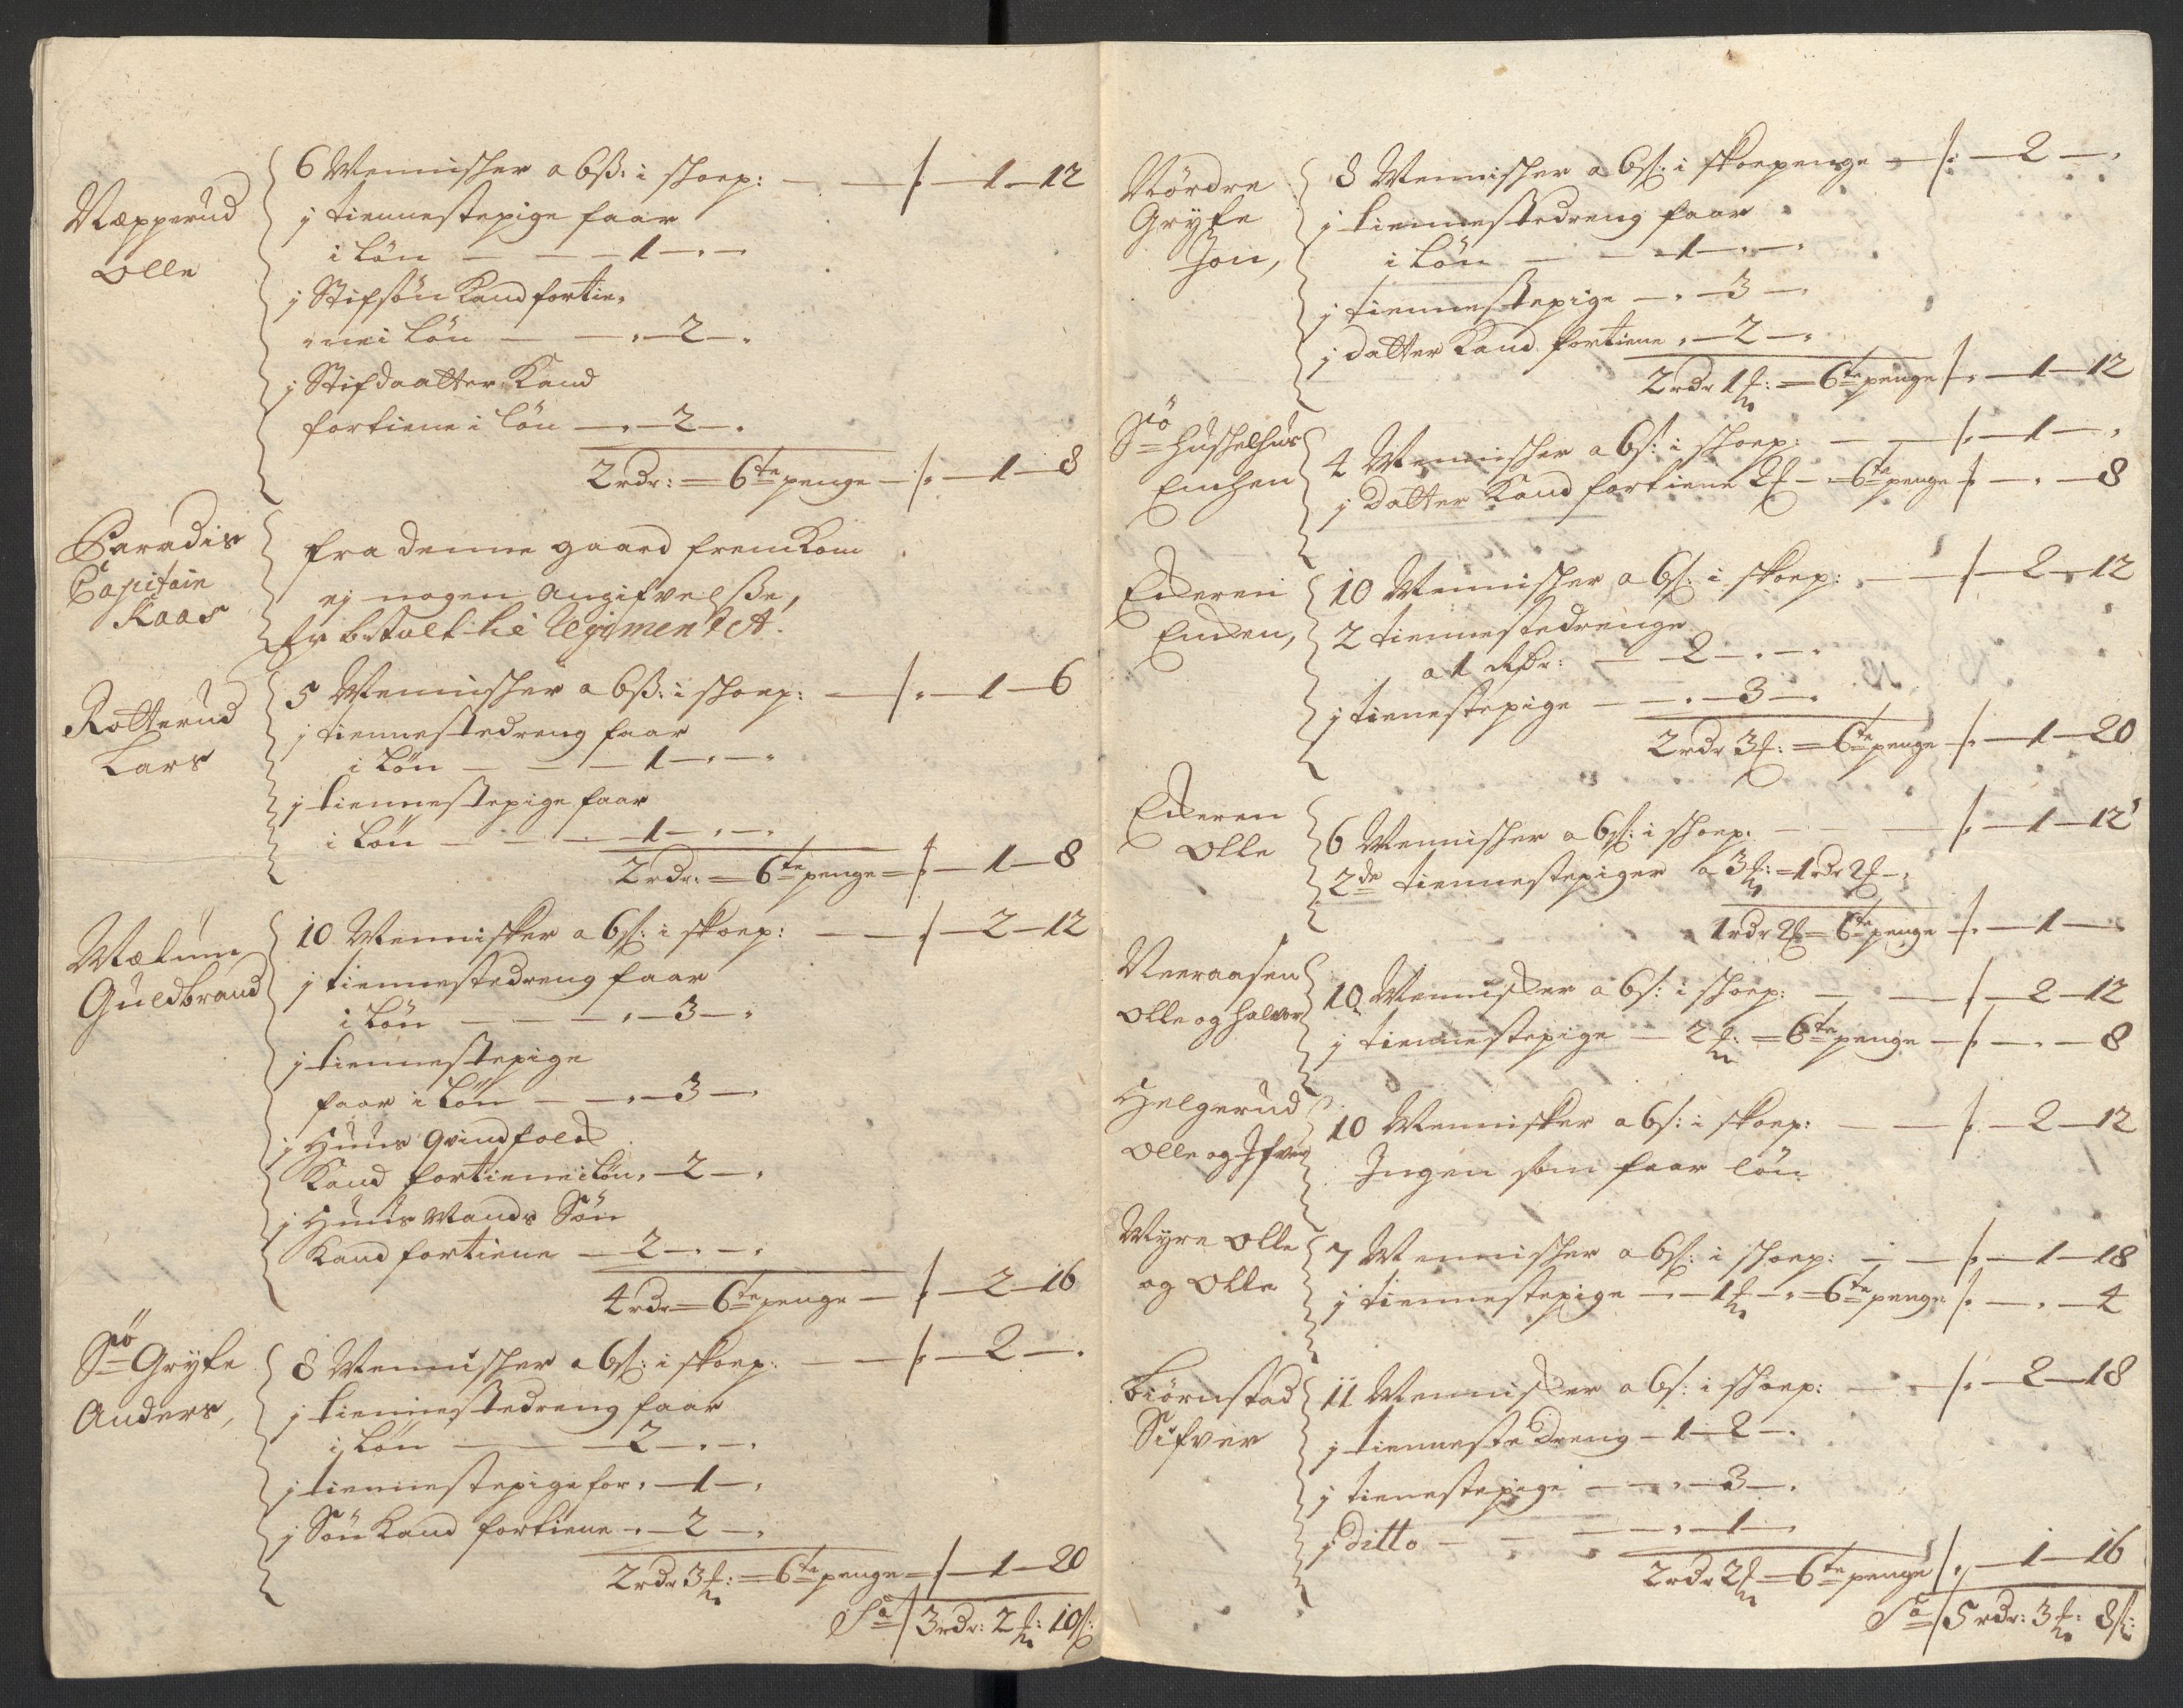 Næpperud
Olle
6 Mennisher a 6ß: i shoep: — — /: — 1 — 12
j tiennestepige faar
i Løn — — — 1 — " —
j Stifsøn Kand fortie„
„ne i Løn — — " — 2 — "
j Stifdaatter Kand
fortiene i Løn — " — 2 — "
2 rdr: = 6te penge — /: — 1 — 8
Paradis
Capitain
Kaas
fra denne gaard fremkom
ej nogen Angifvelße,
Er betalt til Regimentet.
Rotterud
Lars
5 Mennisher a 6ß: i shoep: — /: — 1 — 6
j tiennestedreng faar
i Løn — — — 1 — " — "
j tiennestepige faar
i Løn — — — 1 — " — "
2 rdr: = 6te penge = /: — 1 — 8
Mælum
Guldbrand
10 Mennisker a 6ß: i skoep: — — /: — 2 — 12
j tiennestedreng faar
i Løn — — — " — 3 — "
j tiennestepige
faar i Løn — — " — 3 — "
j Huus Qvindfolk
Kand fortiene i Løn " — 2 — "
j Huus Mands Søn
Kand fortiene — 2 — " — "
4 rdr = 6te penge — /: — 2 — 16
Sø Gryfe
Anders,
8 Mennisher a 6ß: i skoep: — — /: — 2 — "
j tiennestedreng faar
i Løn — — — 2 — " — "
j tiennestepige for " — 1 — "
j Søn Kand fortiene — " — 2 — "
2 rdr 3 f: = 6te penge = /: — 1 — 20
Sa / 3 rdr: 2 f: 10 ß:
Nørdre
Gryfe
Jon,
8 Mennisher a 6ß: i skoepenge — /: — 2 — "
j tiennestedreng faar
i Løn — — 1 — " — "
j tiennestepige — " — 3 — "
j Datter Kand fortiene " — 2 — "
2 rdr 1 f: = 6te penge /: — 1 — 12
Sø Hushelhus
Embten
4 Mennisher a 6ß: i shoep: — — /: — 1 — "
j Datter Kand fortiene 2 f — = 6te penge /: — " — 8
Ederen
Enden,
10 Mennisher a 6ß: i skoep: — — /: — 2 — 12
2 tiennestedrenge
a 1 Rdr: — 2 — " — "
j tienestepige — — " — 3 — "
2 rdr 3 f: = 6te penge — /: — 1 — 20
Ederen
Olle
6 Mennisher a 6ß: i shoep: — — /: — 1 — 12
2de tiennestepiger a 3 f: = 1 rdr 2 f — "
1 rdr 2 f = 6te penge — /: — 1 — "
Neeraasen
Olle og Halvor
10 Mennisker a 6ß: i shoep: — — /: — 2 — 12
j tiennestepige — 2 f: = 6te penge — /: — " — 8
Helgerud
Olle og Ifver
10 Mennisker a 6ß: i skoep: — — /: — 2 — 12
Ingen som faar løn
Myre Olle
og Olle
7 Mennisher a 6ß: i shoep: — — /: — 1 — 18
j tiennestepige — " — 1 f — " = 6te penge /: — " — 4
Biørnstad
Sifver
11 Mennisker a 6ß: i shoep: — — /: — 2 — 18
j tienneste Dreng — 1 — 2 — "
j tienestepige — — " — 3 — "
j ditto — — — " — 1 — "
2 rdr 2 f = 6te penge /: — 1 — 16
Sa / 5 rdr: 3 f: 8 ß: